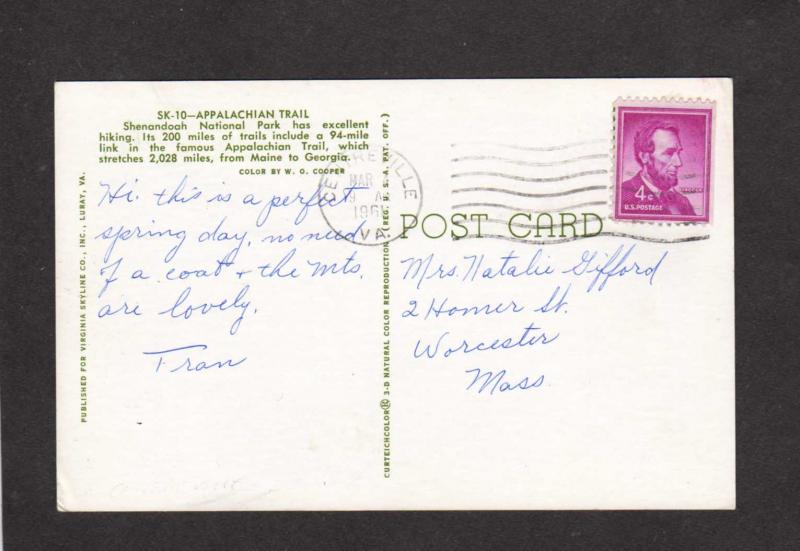 SK-10—APPALACHIAN TRAIL
Shenandoah National Park has excellent
hiking. Its 200 miles of trails include a 94-mile
link in the famous Appalachian Trail, which
stretches 2,028 miles, from Maine to Georgia.
COLOR BY W. O. COOPER
Hi. this is a perfect
spring day, no need
of a coat + the mts.
are lovely.
Fran
PUBLISHED FOR VIRGINIA SKYLINE CO., INC., LURAY, VA.
CURTEICHCOLOR 3-D NATURAL COLOR REPRODUCTION (REG. U.S.A. PAT. OFF.)
CENTREVILLE
MAR
VA.
4¢
U.S. POSTAGE
POST CARD
Mrs. Natalie Gifford
2 Homer St.
Worcester
Mass.